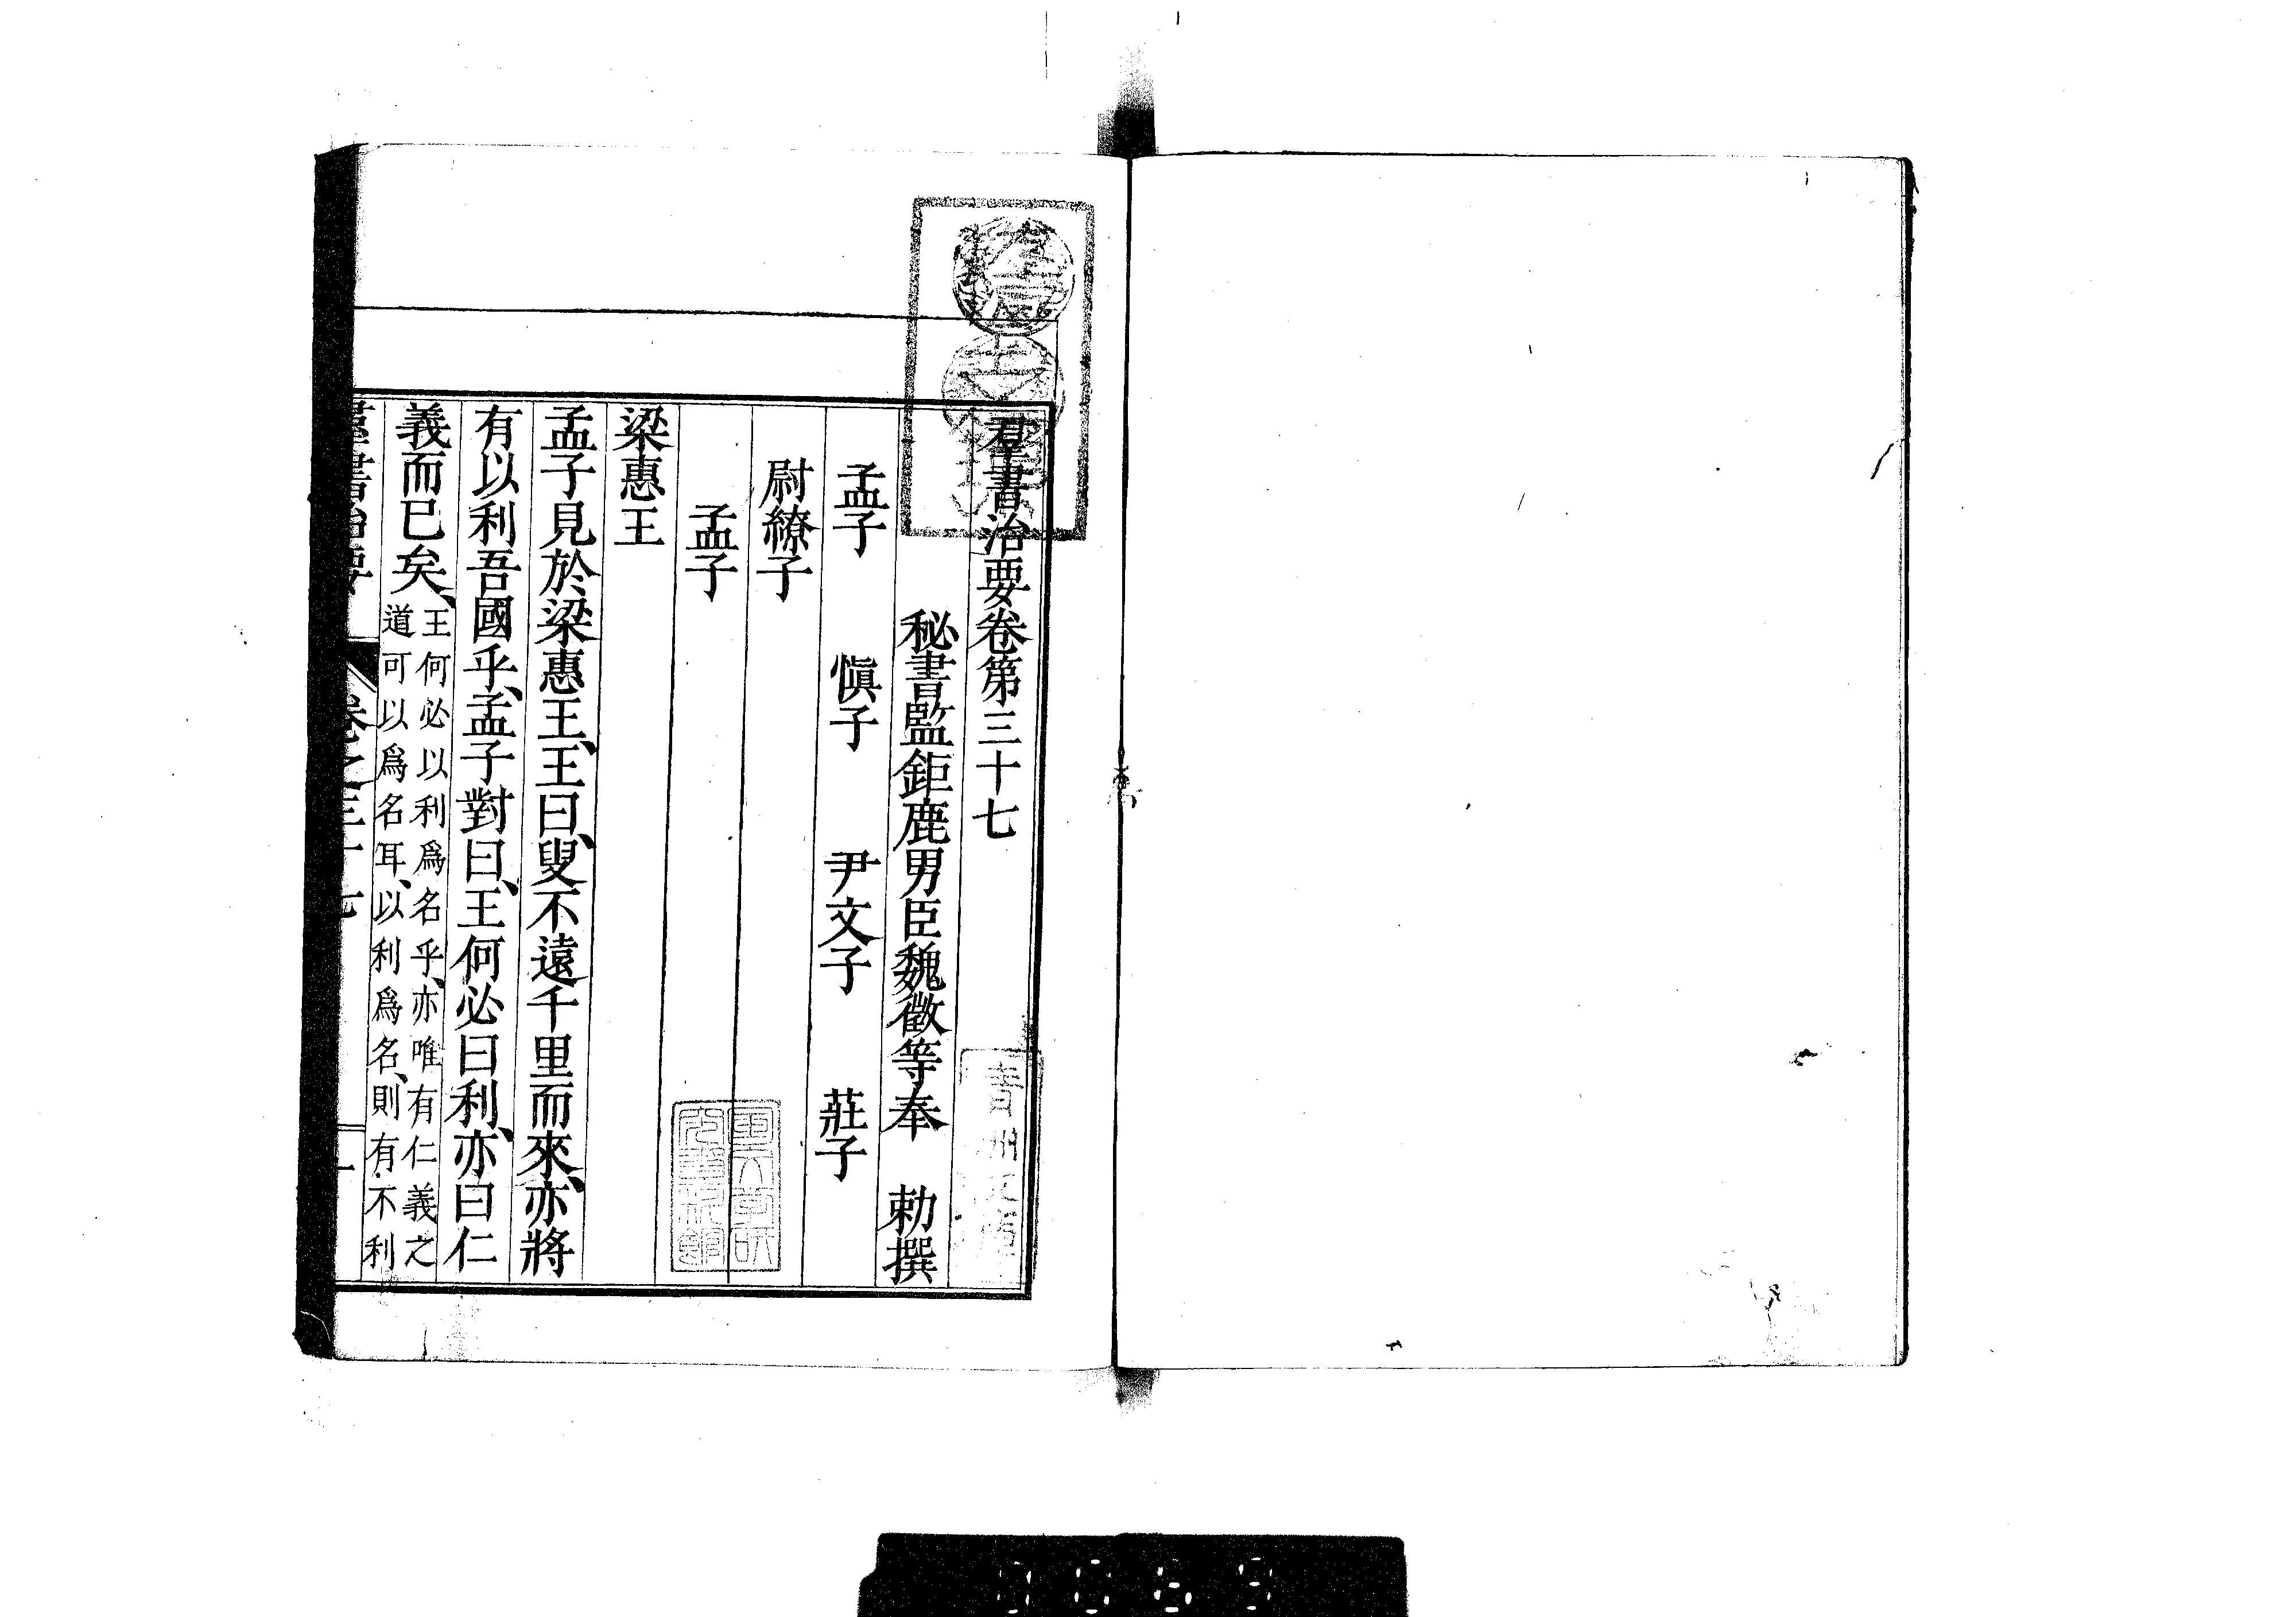 羣書治要卷第三十七
秘書監鉅鹿男臣魏徵等奉　勅撰
孟子　愼子　尹文子　莊子
尉繚子
孟子
梁惠王
孟子見於梁惠王、王曰、叟不遠千里而來、亦將
有以利吾國乎、孟子對曰、王何必曰利、亦曰仁
義而已矣、
王何必以利爲名乎、亦唯有仁義之
道可以爲名耳、以利爲名、則有不利
羣書治要　卷之三十七　一